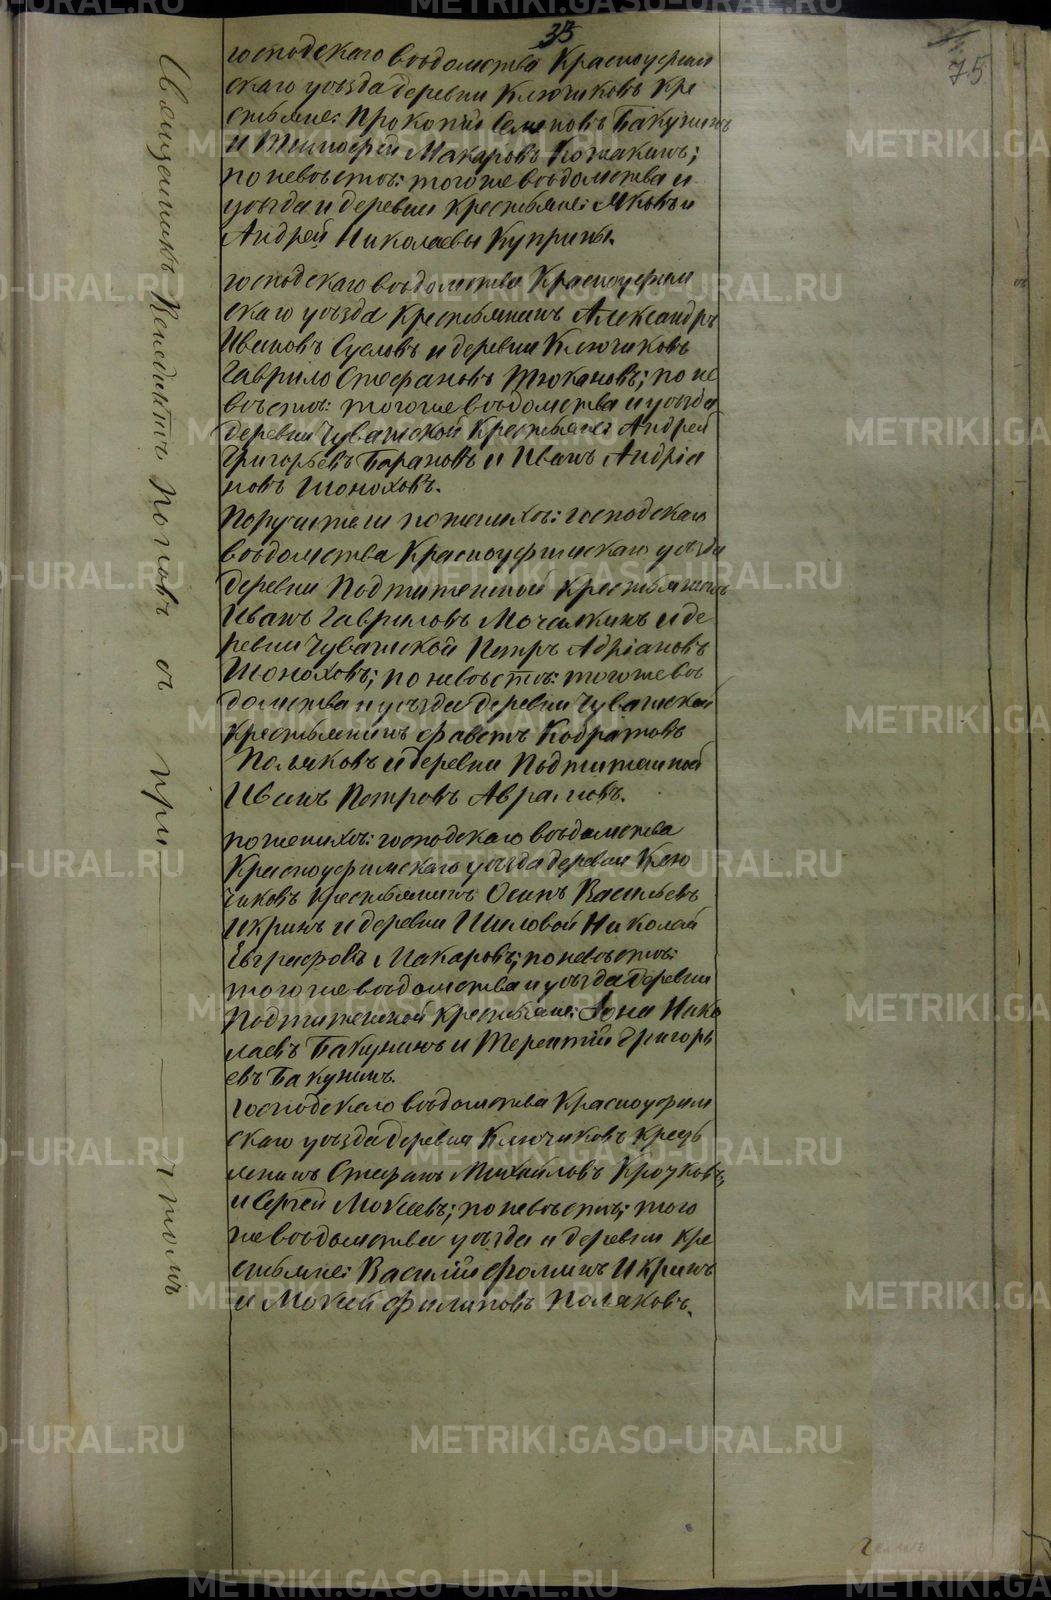 33
75
господскаго вѣдомства Красноуфим
скаго уѣзда деревни Ключиковъ Кре
стьяне: Прокопій Семеновъ Бакунинъ
и Тимофей Макаровъ Кожакинъ;
по невѣстѣ: того же вѣдомства и
уѣзда и деревни Крестьяне: Яковъ и
Андрей Николаевы Куприны.
господскаго вѣдомства Красноуфим
скаго уѣзда Крестьянинъ Александръ
Ивановъ Сусловъ и деревни Ключиковъ
Гаврило Стефановъ Тюкановъ; по не
вѣстѣ: того же вѣдомства и уѣзда
деревни Чувашской Крестьяне Андрей
Григорьевъ Барановъ и Иванъ Андріа
новъ Шоноховъ.
Поручители по женихѣ: господскаго
вѣдомства Красноуфимскаго уѣзда
деревни Подгитенной Крестьянинъ
Иванъ Гавриловъ Мочалкинъ и де
ревни Чувашской Петръ Адріановъ
Шоноховъ; по невѣстѣ: того же вѣ
домства и уѣзда деревни Чувашской
Крестьянинъ Фавстъ Кодратовъ
Поляковъ и деревни
Иванъ Петровъ Аврамовъ.
по женихѣ: господскаго вѣдомства
Красноуфимскаго уѣзда деревни Клю
чиковъ Крестьянинъ Осипъ Васильевъ
Икринъ и деревни Шиловой Николай
Евграфовъ Макаровъ; по невѣстѣ:
того же вѣдомства и уѣзда деревни
Крестьяне: Іона Нико
лаевъ Бакунинъ и Терентій Григорь
евъ Бакунинъ.
Господскаго вѣдомства Красноуфим
скаго уѣзда деревни Ключиковъ Кресть
янинъ Стефанъ Михайловъ Крочковъ
и Сергей Мокеевъ; по невѣстѣ; того
же вѣдомства уѣзда и деревни Кре
стьяне: Василій Фоминъ Икринъ
и Мокей Филиповъ Поляковъ.
Священникъ Венедиктъ Поповъ съ при чтомъ
METRIKI.GASO-URAL.RU